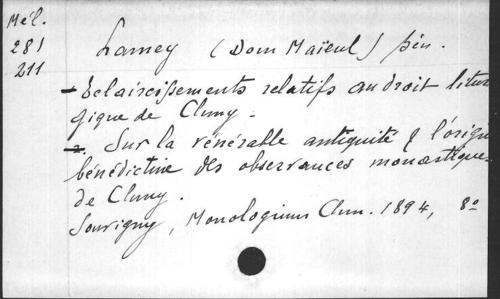 Mél.
281
211
Lamey (Dom Maïeul) bén.
- Eclaircissements relatifs au droit litur
gique de Cluny.
2. Sur la vénérable antiquité & l'origine
bénédictine des observances monastiques
de Cluny.
Souvigny, Monologium Clun. 1894, 8º